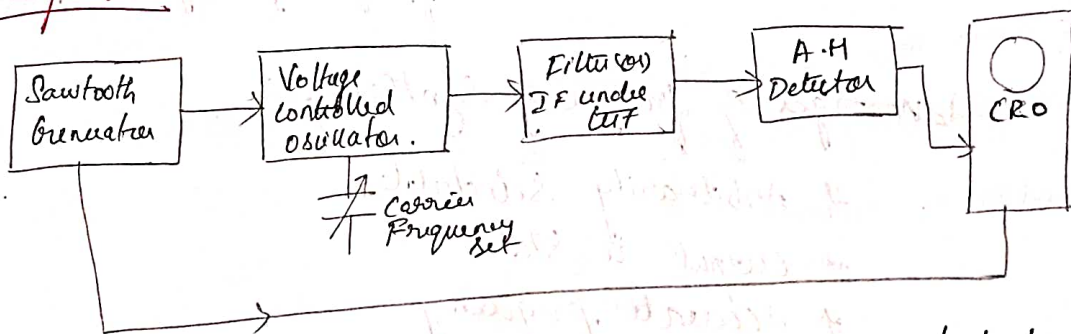 Sawtooth
Generator
Voltage
controlled
oscillator.
Carrier
Frequency
set
Filter (or)
IF under
test
A.M
Detector
CRO